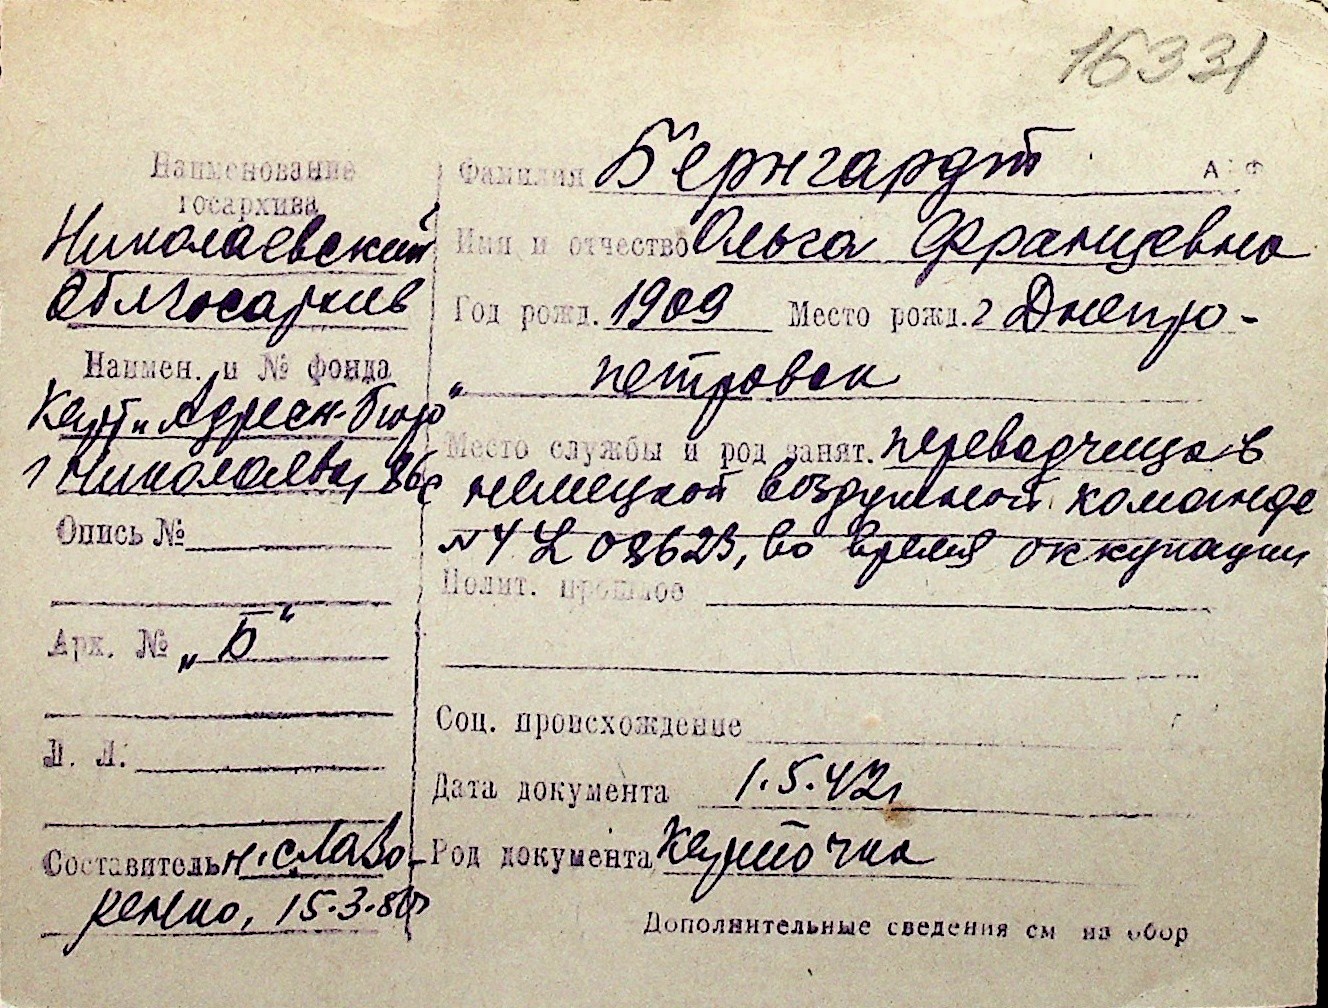 16331
Наименование
госархива
Николаевский
Облгосархив
Наимен. и № фонда
Карт. „Адресн. бюро“
г Николаева,
Опись №
Арх. № „Б“
Л. Л.
Составитель Н. Славо-
ренко, 15.3.
Фамилия Бернгардт
Имя и отчество Ольга Францевна
Год рожд. 1909 Место рожд. г Днепро-
петровск
Место службы и род занят. переводчица в
немецкой воздушной команде
во время оккупации
Полит. прошлое
Соц. происхождение
Дата документа 1.5.42г
Род документа Карточка
Дополнительные сведения см на обор